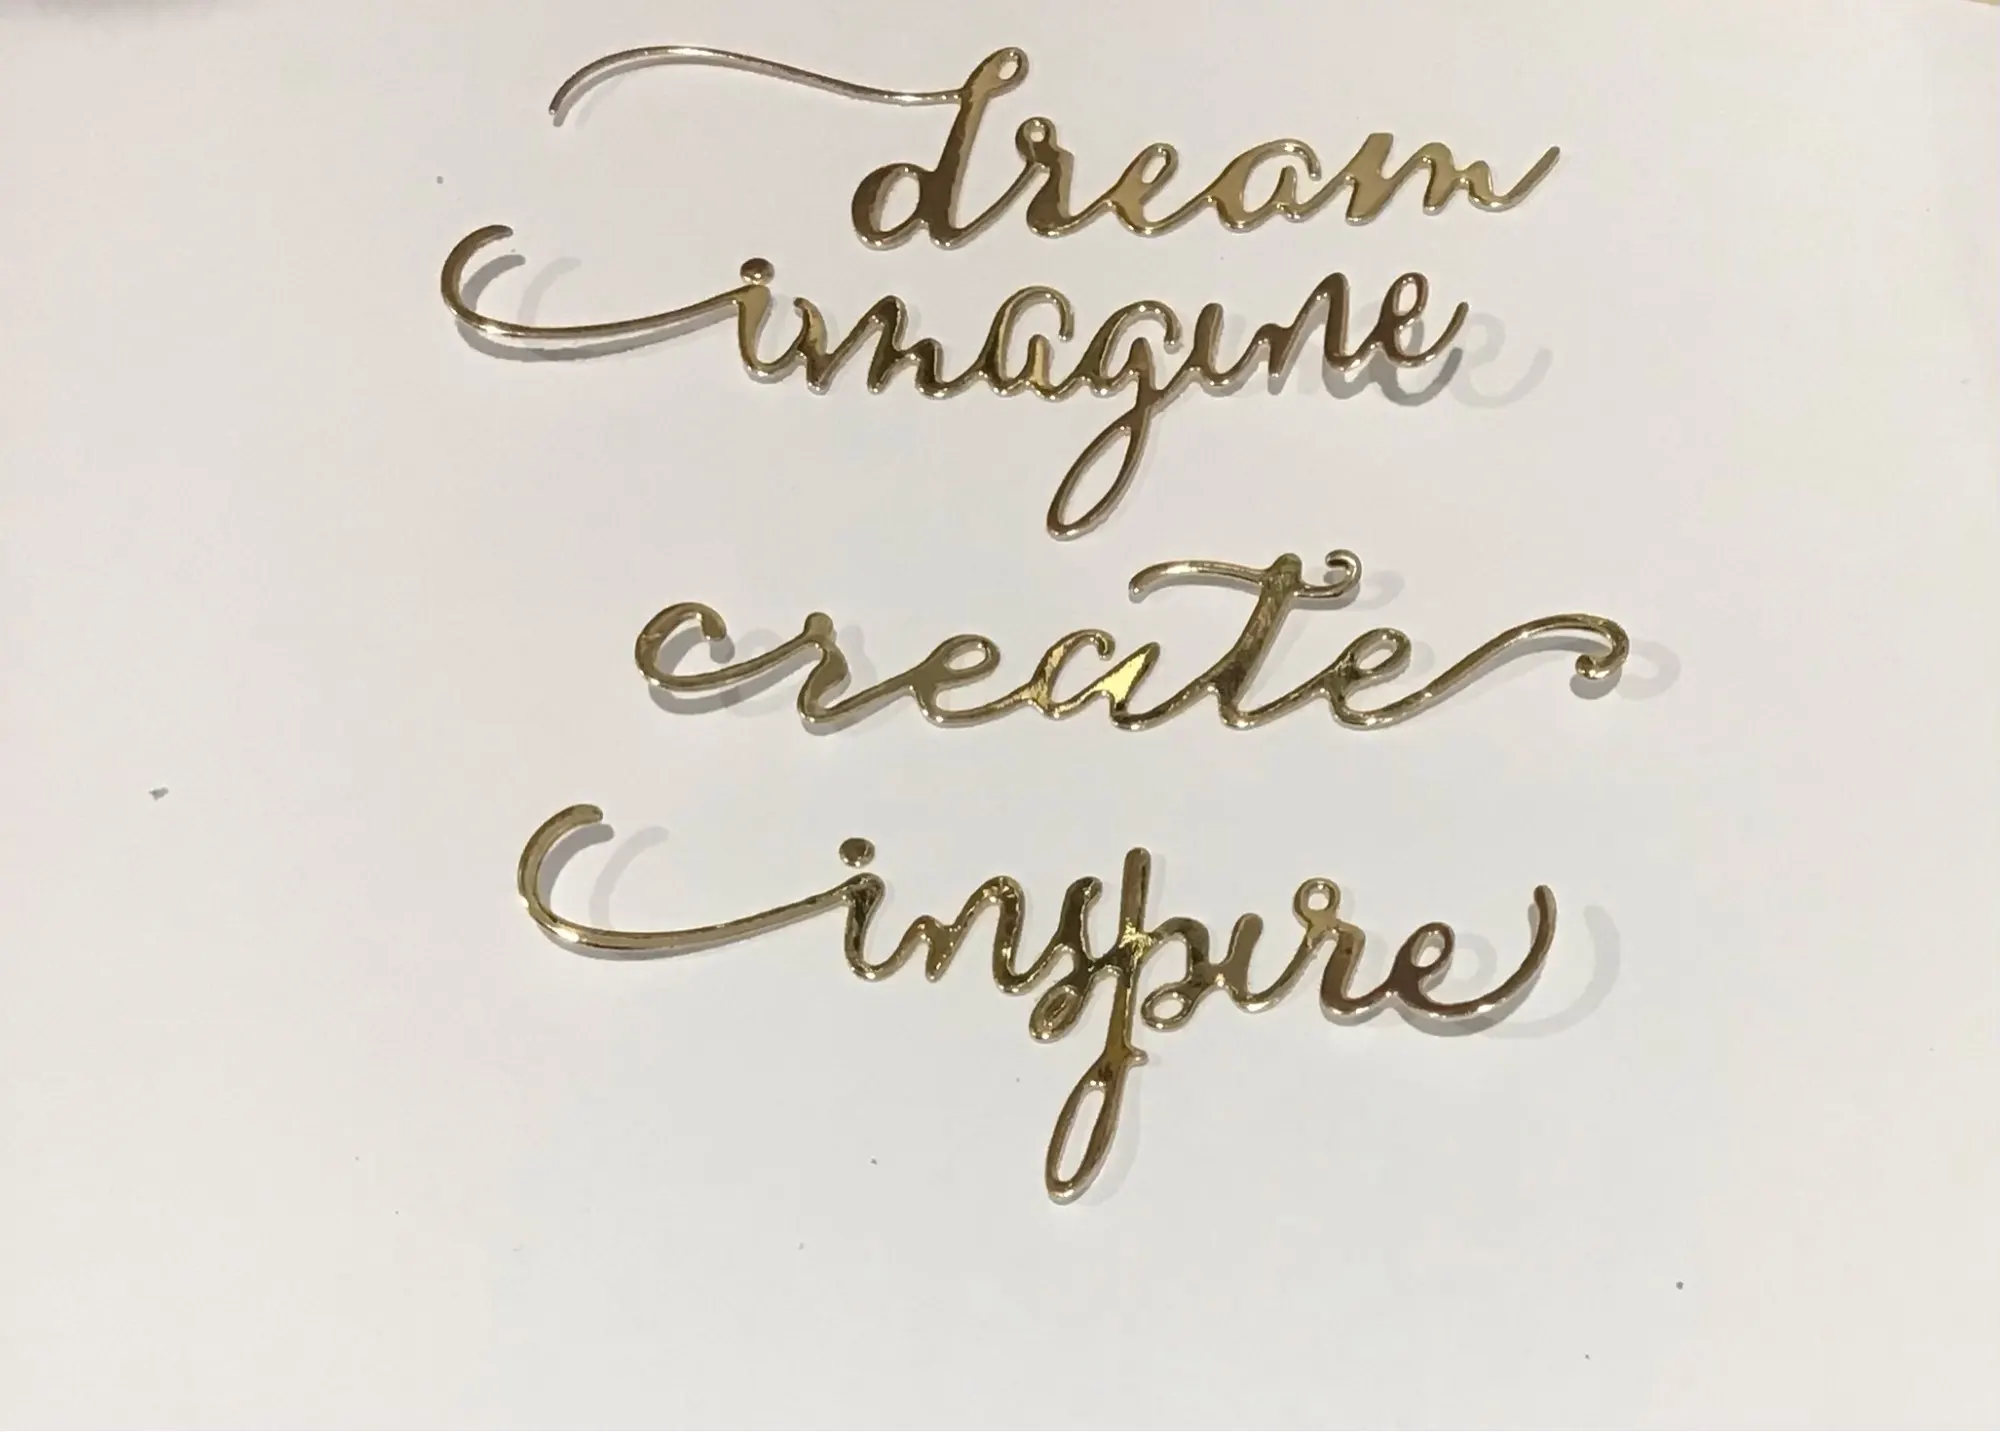 dream
imagine
create
inspire